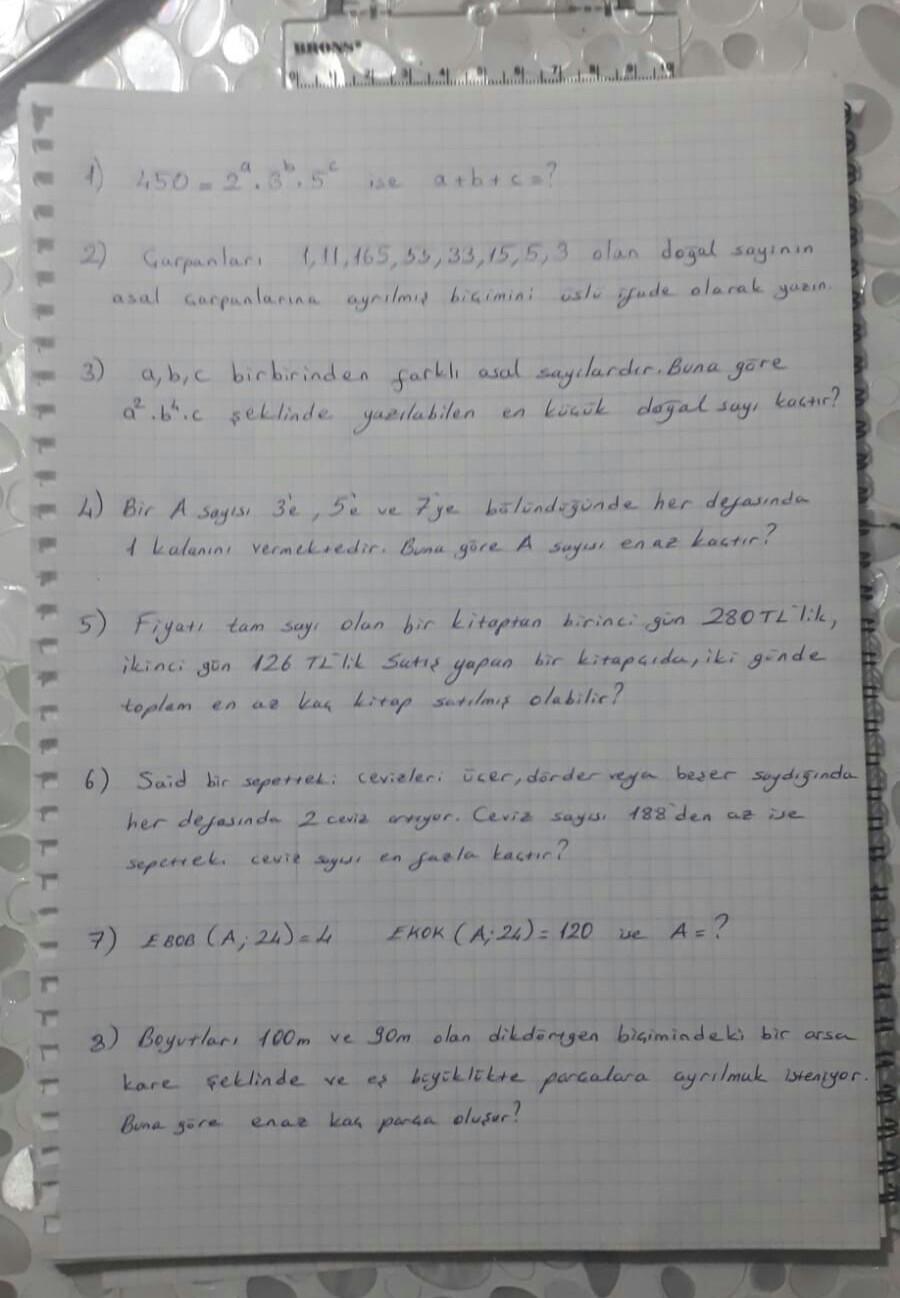 BRONS
0 1 2 3 4 5 6 7 8 9 10
1) 450 = 2^a . 3^b . 5^c ise a+b+c=?
2) Çarpanları 1, 11, 165, 55, 33, 15, 5, 3 olan doğal sayının
asal çarpanlarına ayrılmış biçimini üslü ifade olarak yazın.
3) a, b, c birbirinden farklı asal sayılardır. Buna göre
a² . b⁴ . c şeklinde yazılabilen en küçük doğal sayı kaçtır?
4) Bir A sayısı 3'e, 5'e ve 7'ye bölündüğünde her defasında
1 kalanını vermektedir. Buna göre A sayısı en az kaçtır?
5) Fiyatı tam sayı olan bir kitaptan birinci gün 280 TL'lik,
ikinci gün 126 TL'lik satış yapan bir kitapçıda, iki günde
toplam en az kaç kitap satılmış olabilir?
6) Said bir sepetteki cevizleri üçer, dörder veya beşer saydığında
her defasında 2 ceviz artıyor. Ceviz sayısı 188'den az ise
sepetteki ceviz sayısı en fazla kaçtır?
7) EBOB (A; 24) = 4 EKOK (A; 24) = 120 ise A = ?
8) Boyutları 100m ve 90m olan dikdörtgen biçimindeki bir arsa
kare şeklinde ve eş büyüklükte parçalara ayrılmak isteniyor.
Buna göre en az kaç parça oluşur?